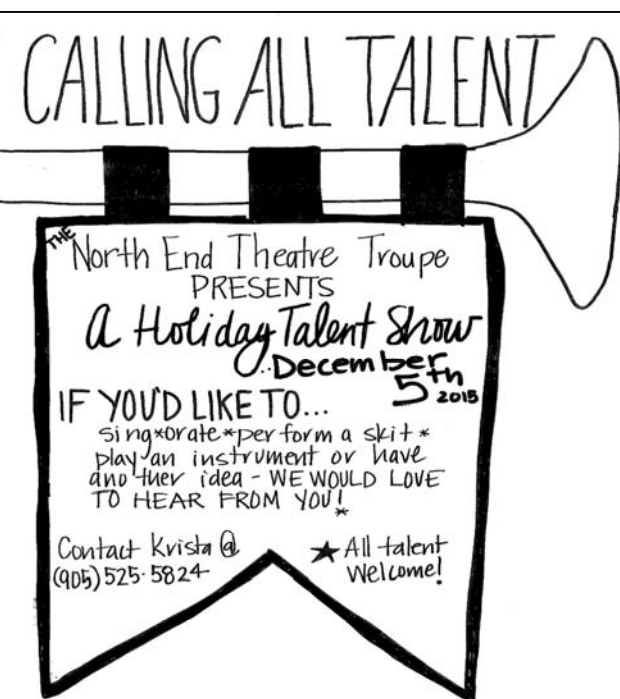 CALLING ALL TALENT
THE North End Theatre Troupe
PRESENTS
a Holiday Talent Show
December
5th
2015
IF YOU'D LIKE TO...
sing*orate*perform a skit*
play an instrument or have
another idea - WE WOULD LOVE
TO HEAR FROM YOU!
*
Contact Krista @
(905) 525-5824
★ All talent
Welcome!